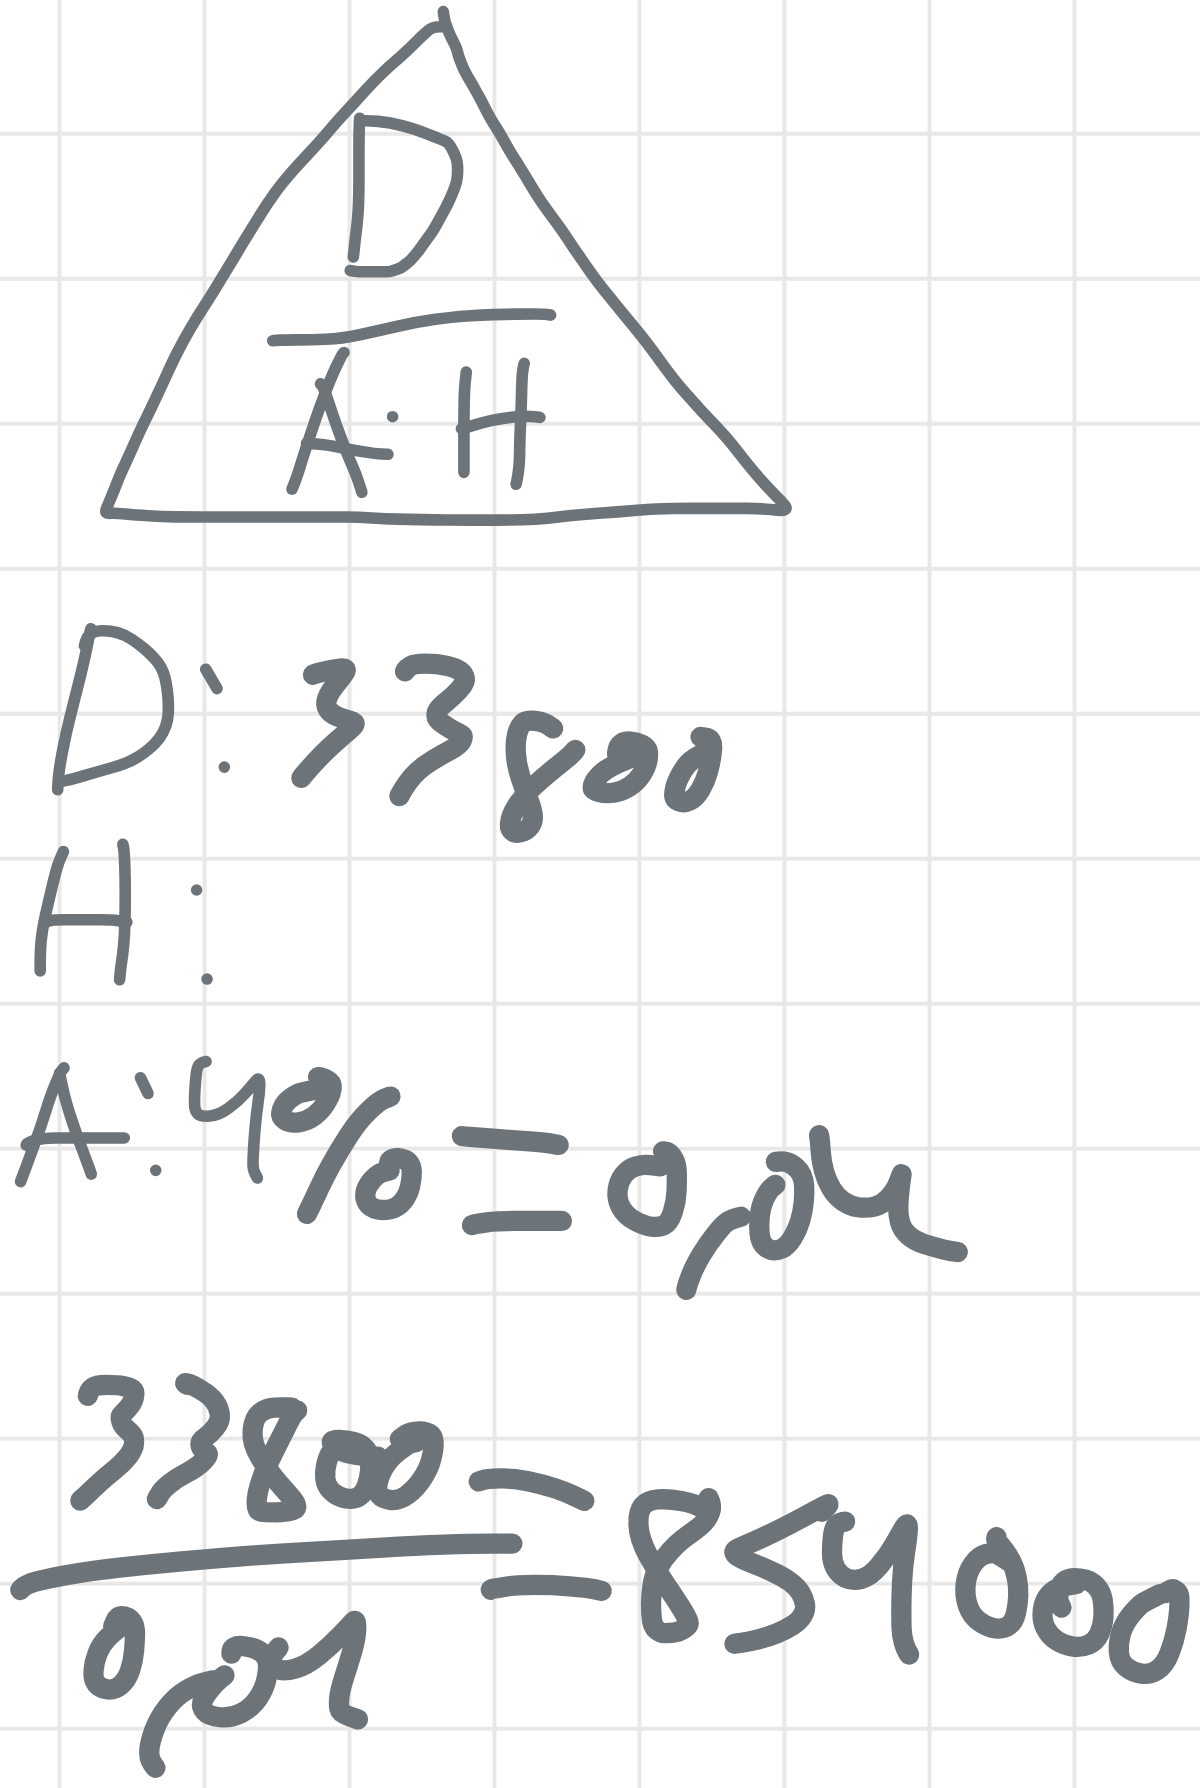 D
A · H
D: 33800
H:
A: 4% = 0,04
33800
0,04
= 854000